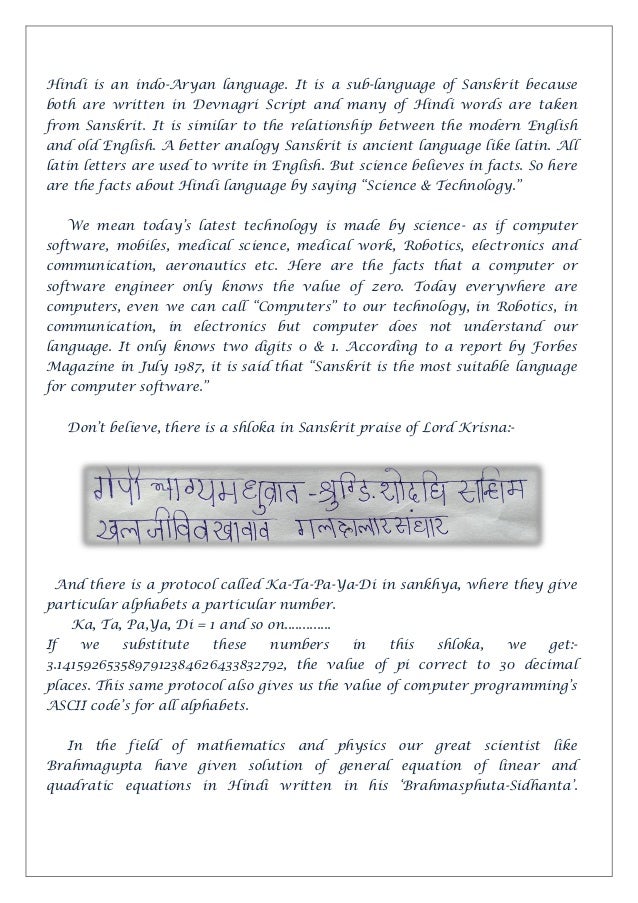 Hindi is an indo-Aryan language. It is a sub-language of Sanskrit because
both are written in Devnagri Script and many of Hindi words are taken
from Sanskrit. It is similar to the relationship between the modern English
and old English. A better analogy Sanskrit is ancient language like latin. All
latin letters are used to write in English. But science believes in facts. So here
are the facts about Hindi language by saying “Science & Technology.”
We mean today’s latest technology is made by science- as if computer
software, mobiles, medical science, medical work, Robotics, electronics and
communication, aeronautics etc. Here are the facts that a computer or
software engineer only knows the value of zero. Today everywhere are
computers, even we can call “Computers” to our technology, in Robotics, in
communication, in electronics but computer does not understand our
language. It only knows two digits 0 & 1. According to a report by Forbes
Magazine in July 1987, it is said that “Sanskrit is the most suitable language
for computer software.”
Don’t believe, there is a shloka in Sanskrit praise of Lord Krisna:-
गोपी भाग्यमधुव्रात - श्रुग्डि. शोदधि सन्धिम
खलजीवितखावाव गलहालारसंधार
And there is a protocol called Ka-Ta-Pa-Ya-Di in sankhya, where they give
particular alphabets a particular number.
Ka, Ta, Pa,Ya, Di = 1 and so on.............
If we substitute these numbers in this shloka, we get:-
3.141592653589791238462643383 2792, the value of pi correct to 30 decimal
places. This same protocol also gives us the value of computer programming’s
ASCII code’s for all alphabets.
In the field of mathematics and physics our great scientist like
Brahmagupta have given solution of general equation of linear and
quadratic equations in Hindi written in his ‘Brahmasphuta-Sidhanta’.